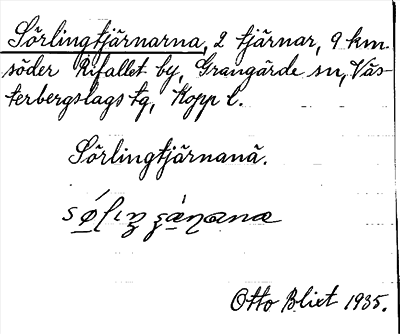 Sörlingtjärnarna, 2 tjärnar, 9 km.
söder Rifallet by, Grangärde sn, Väs-
terbergslags tg, Kopp l.
Sörlingtjärnanä.
Otto Blixt 1935.